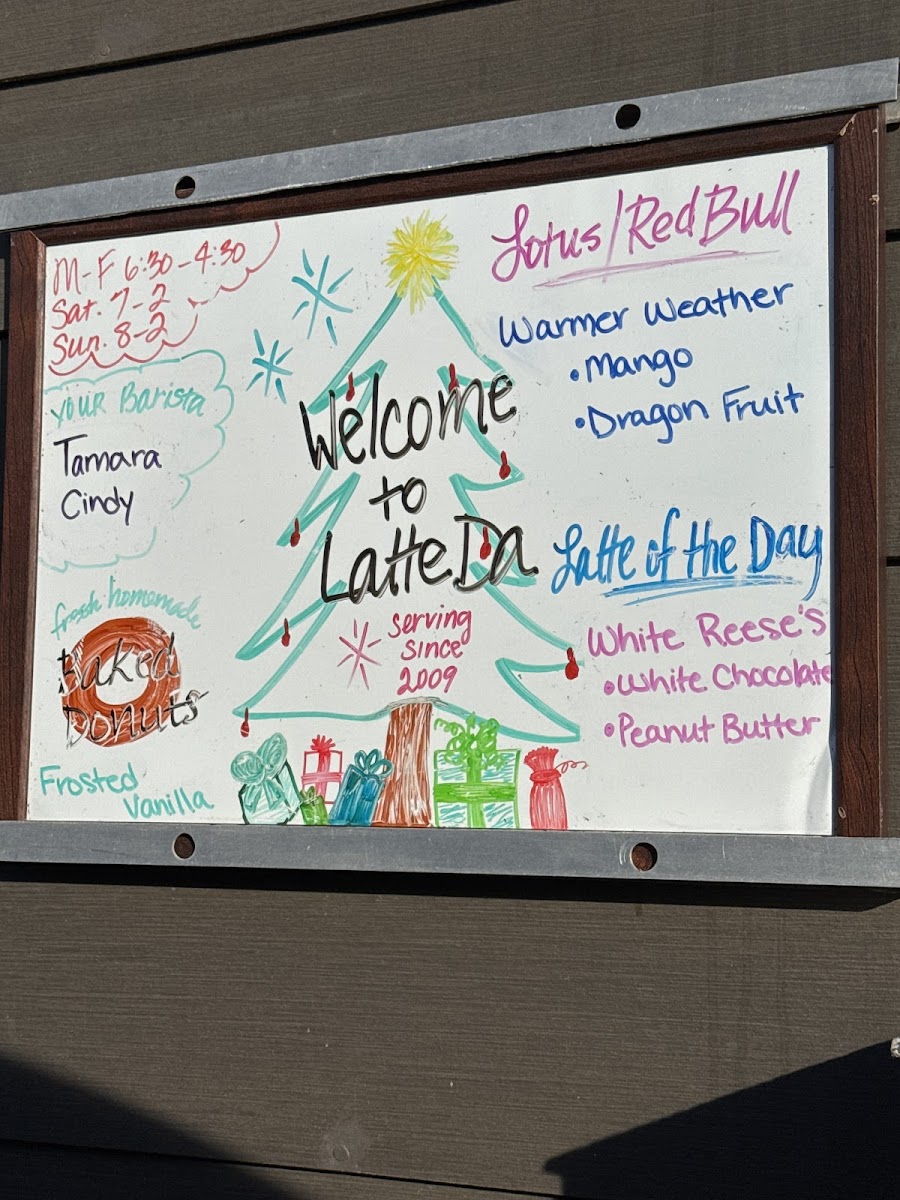 M-F 6:30-4:30
Sat. 7-2
Sun. 8-2
your Barista
Tamara
Cindy
fresh homemade
Baked
Donuts
Frosted
Vanilla
Welcome
to
Latte Da
serving
since
2009
Lotus/Red Bull
Warmer Weather
•Mango
•Dragon Fruit
Latte of the Day
White Reese's
•White Chocolate
•Peanut Butter